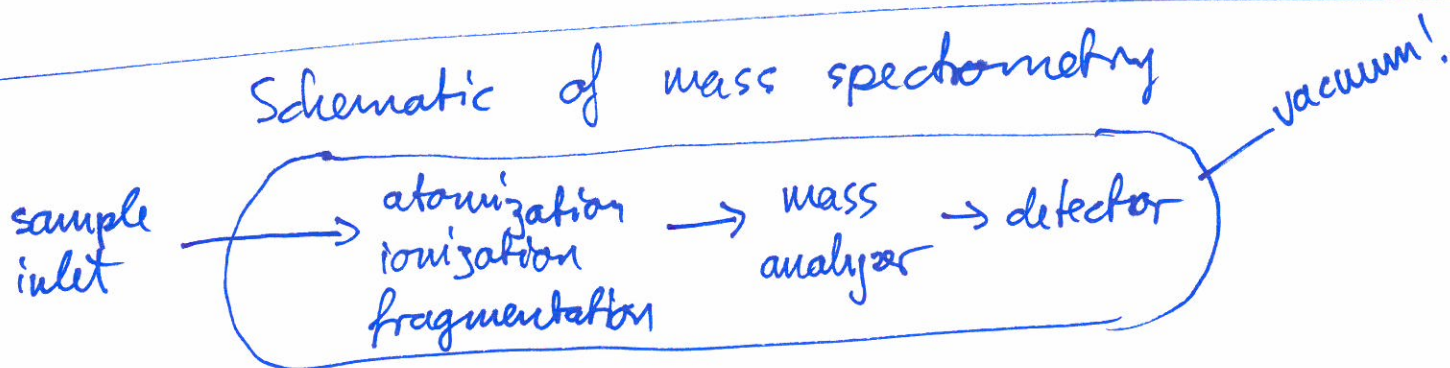 Schematic of mass spectrometry
vacuum!
sample
inlet
→ atomization
ionization
fragmentation
→ mass
analyzer
→ detector